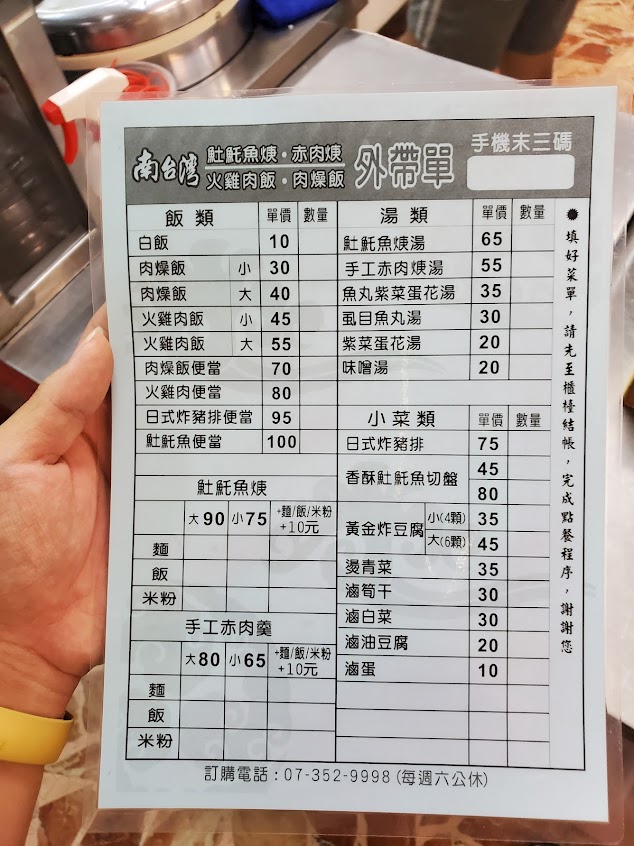 南台灣
𩵚魠魚焿・赤肉焿
火雞肉飯・肉燥飯
外帶單
手機末三碼
飯類 單價 數量
白飯 10
肉燥飯 小 30
肉燥飯 大 40
火雞肉飯 小 45
火雞肉飯 大 55
肉燥飯便當 70
火雞肉便當 80
日式炸豬排便當 95
𩵚魠魚便當 100
𩵚魠魚焿
大90 小75 +麵/飯/米粉 +10元
麵
飯
米粉
手工赤肉羹
大80 小65 +麵/飯/米粉 +10元
麵
飯
米粉
湯類 單價 數量
𩵚魠魚焿湯 65
手工赤肉焿湯 55
魚丸紫菜蛋花湯 35
虱目魚丸湯 30
紫菜蛋花湯 20
味噌湯 20
小菜類 單價 數量
日式炸豬排 75
香酥𩵚魠魚切盤 45
80
黃金炸豆腐 小(4顆) 35
大(6顆) 45
燙青菜 35
滷筍干 30
滷白菜 30
滷油豆腐 20
滷蛋 10
✹填好菜單，請先至櫃檯結帳，完成點餐程序，謝謝您
訂購電話：07-352-9998(每週六公休)